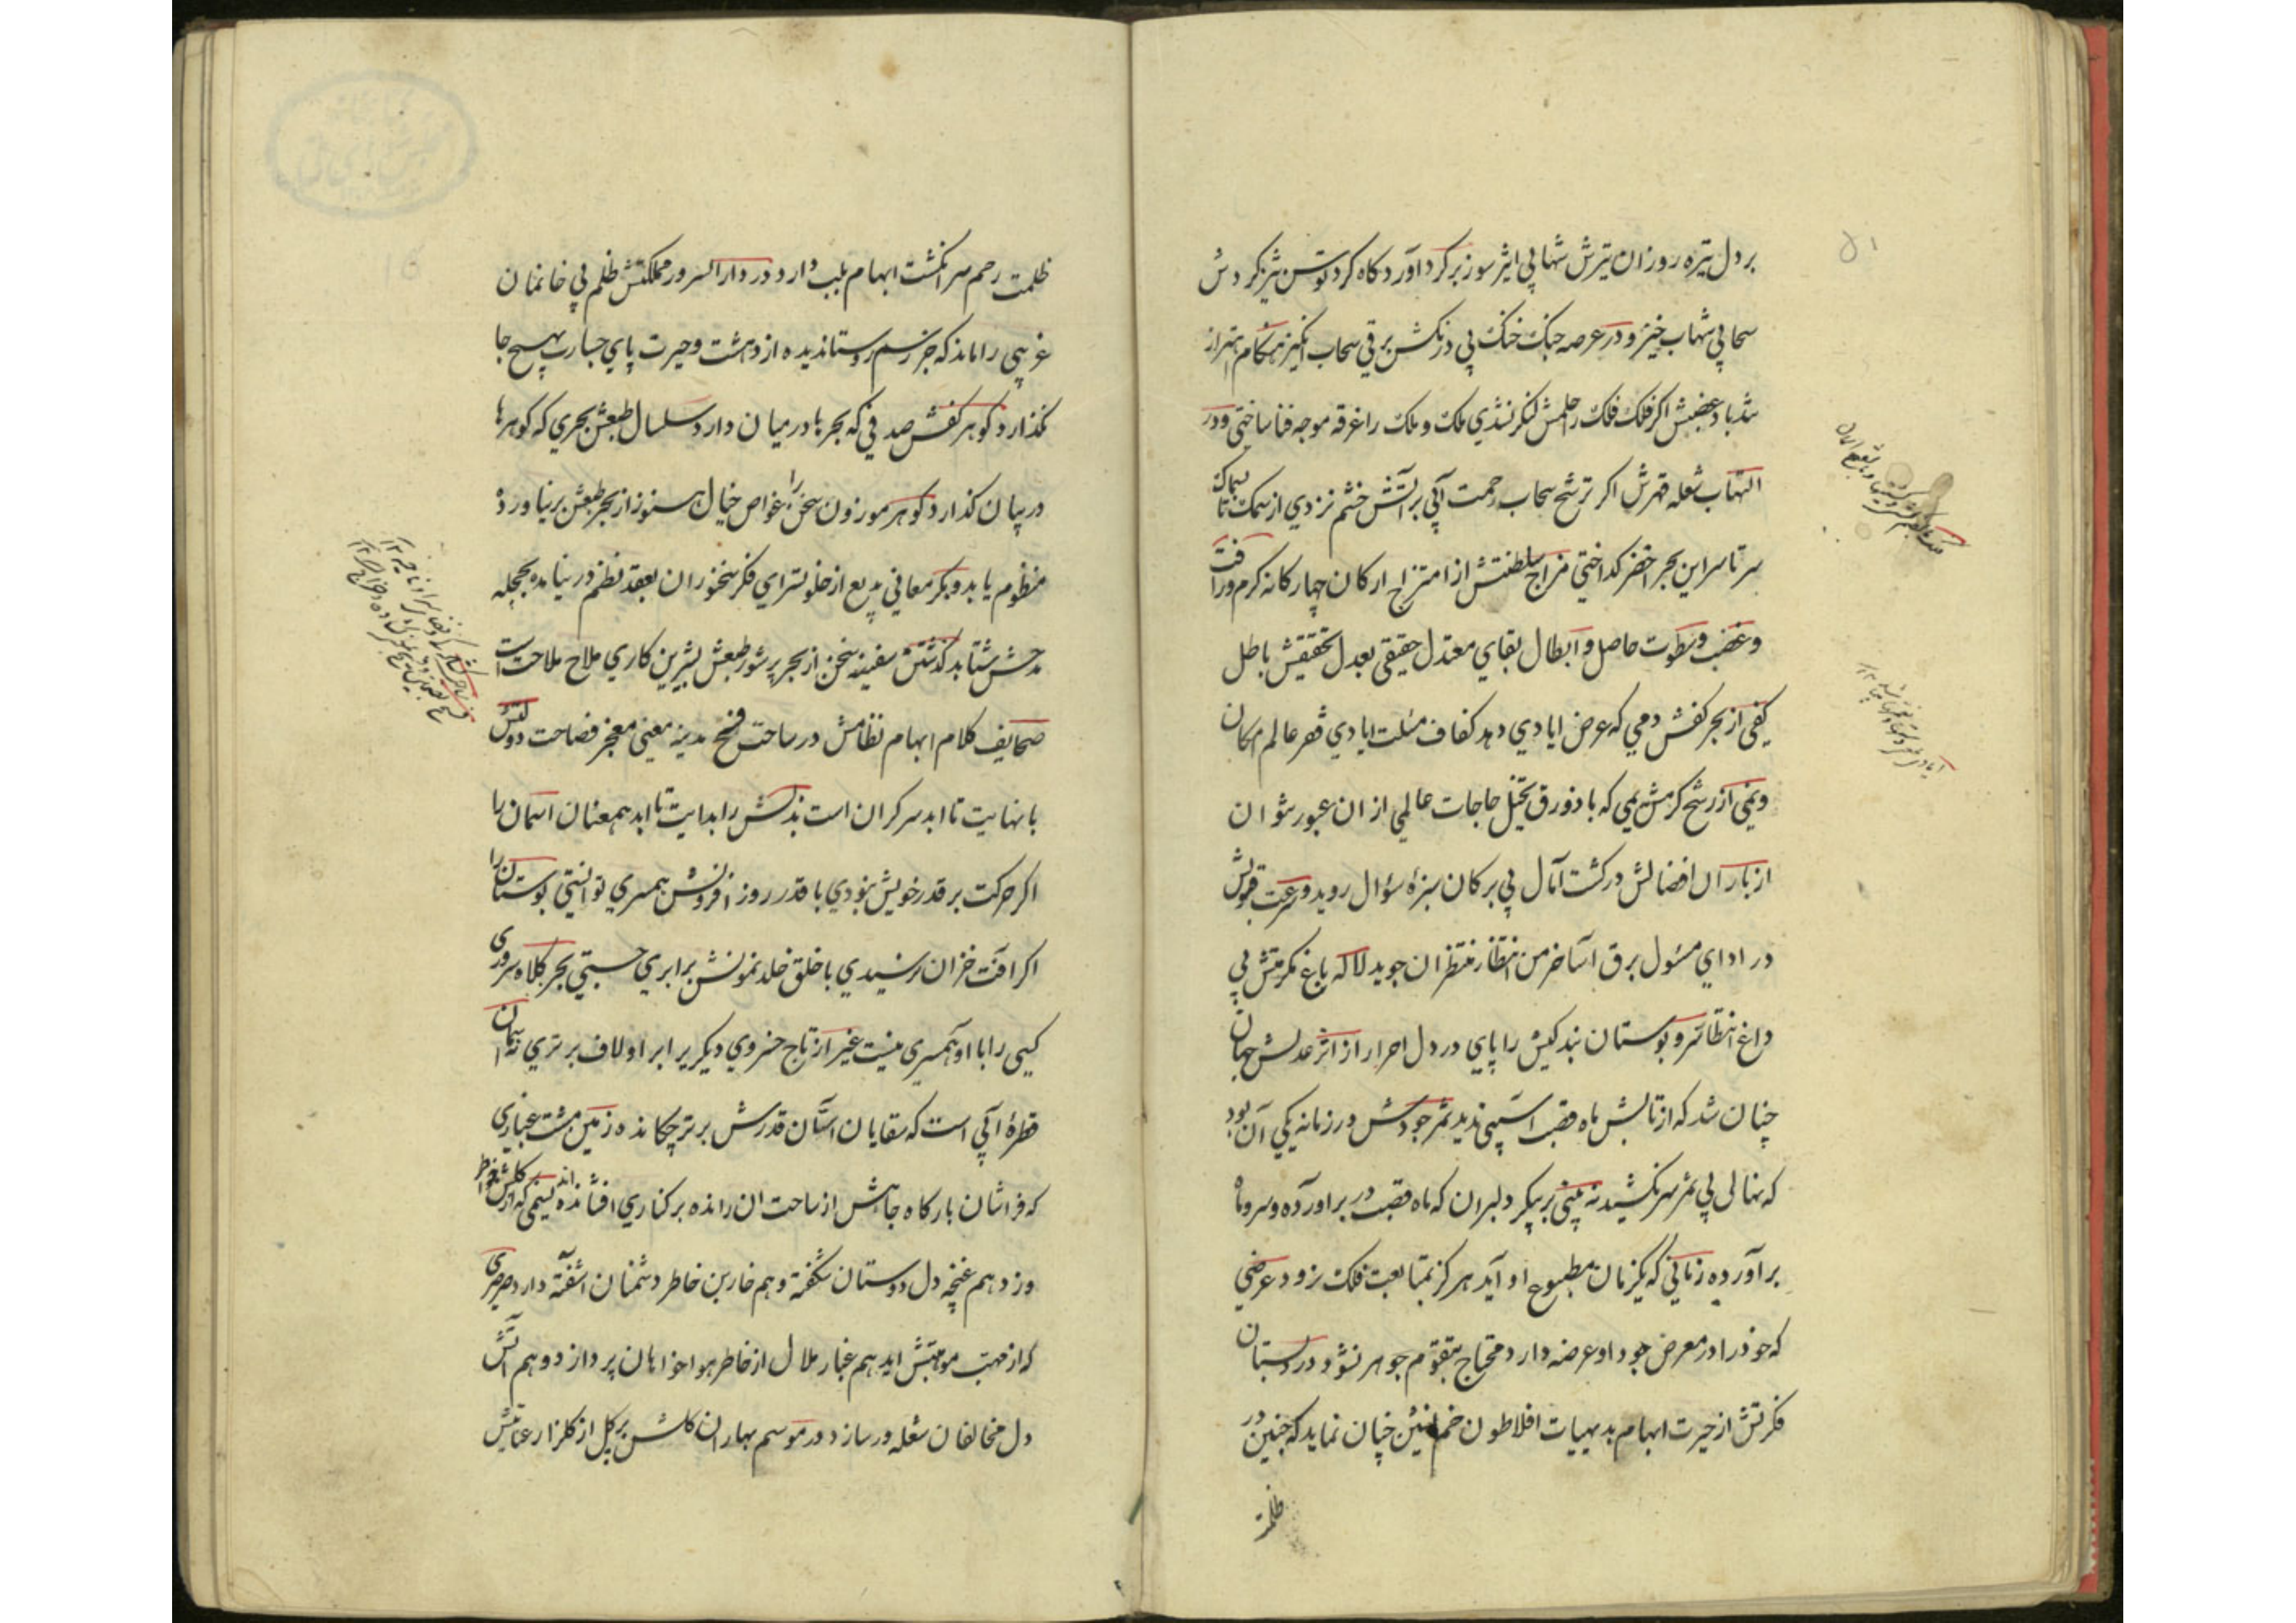 بر دل تیره روزان تیرش شهابی اثیر سوز بر کرد آورد کاه کرد توسن تیز کردش
سحابی شهاب خیز و در عرصه جنک خنک پی درنکش برقی سحاب انکیز هنکام اهتزاز
تندباد غضبش اکر فلک فلک را حلمش لنکر نشدی ملک و ملک را غرقه موجه فنا ساختی و در
التهاب شعله قهرش اکر ترشح سحاب رحمت آبی بر آتش خشم نزدی از سمک تا بسماک
سر تا سر این بحر اخضر کداختی مزاج سلطنتش از امتزاج ارکان چهار کانه کرم و رافت
و غضب و سطوت حاصل و ابطال بقای معتدل حقیقی بعدل تحقیقش باطل
کفی از بحر کفش دمی که عرض ایادی دهد کفاف مسئلت ایادی قهر عالم امکان
و نمی از رشح کرمش یمی که با ذورق تخیل حاجات عالمی از ان عبور نتوان
از باران افضالش در کشت آمال پی برکان سبزه سؤال روید و سرعت قبولش
در ادای مسئول برق آسا خرمن انتظار منتظران جوید لاله باغ مکرمتش بی
داغ انتظار سرو بوستان بندکیش را پای در دل احرار از اثر عدلش جهان
چنان شد که از تابش ماه قصب اسیبی ندید ثمر جودش در زمانه یکی آن بود
که نهالی بی ثمر سر نکشید نه بینی بر پیکر دلبران که ماه قصب در بر اورده و سرو ماه
بر آورده زمانی که یکزمان مطبوع او آید هرکز بمتابعت فلک نرود عرضی
که خود را در معرض جود او عرضه دارد محتاج بتقوم جوهر نشود در دبستان
فکرتش از حیرت ابهام بدیهیات افلاطون خم نشین چنان نماید که جنین در
ظلمت
ظلمت رحم سر انکشت ابهام بلب دارد و در دار السرور مملکتش ظلم بی خانمان
غریبی را ماند که جز رسم روستا ندیده از دهشت و حیرت پای جسارت بهیچ جا
نکذارد کوهر کفش صدفی که بحرها در میان دارد سلسال طبعش بحری که کوهرها
در پیان کذارد کوهر موزون سخن را غواص خیال هنوز از بحر طبعش بر نیاورده
منظوم یابد و بکر معانی بدیع از خلوتسرای فکر سخنوران بعقد نظم در نیامده بحجله
مدحش شتابد کذشتن سفینه سخن از بحر پر شور طبعش بشیرین کاری ملاح ملاحت است
صحایف کلام ابهام نظامش در ساحت فتح مدینه معنی معجز فصاحت
با نهایت تا ابد سر کران است بذلش را بدایت تا ابد همعنان اسمان را
اکر حرکت بر قدر خویش نبودی با قدر روز افزونش همسری توانستی بوستان را
اکر افت خزان نرسیدی با خلق خلد نمونش برابری جستی بجز کلاه سروری
کسی را با او همسری نیست غیر از تاج خسروی دیکریرا بر او لاف برتری نه
قطره آبی است که سقایان استان قدرش بر تر چکانده زمین مشت غباری
که فراشان بارکاه جاهش از ساحت ان رانده بر کناری افشانده اند نسیمی که از
وزد هم غنچه دل دوستان شکفته و هم خاربن خاطر دشمنان اشفته دارد صرصری
که از مهب موهبتش اید هم غبار ملال از خاطر هواخواهان پردازد و هم اتش
دل مخالفان شعله ور سازد در موسم بهاران کلشن پر کل از کلزار عنایتش